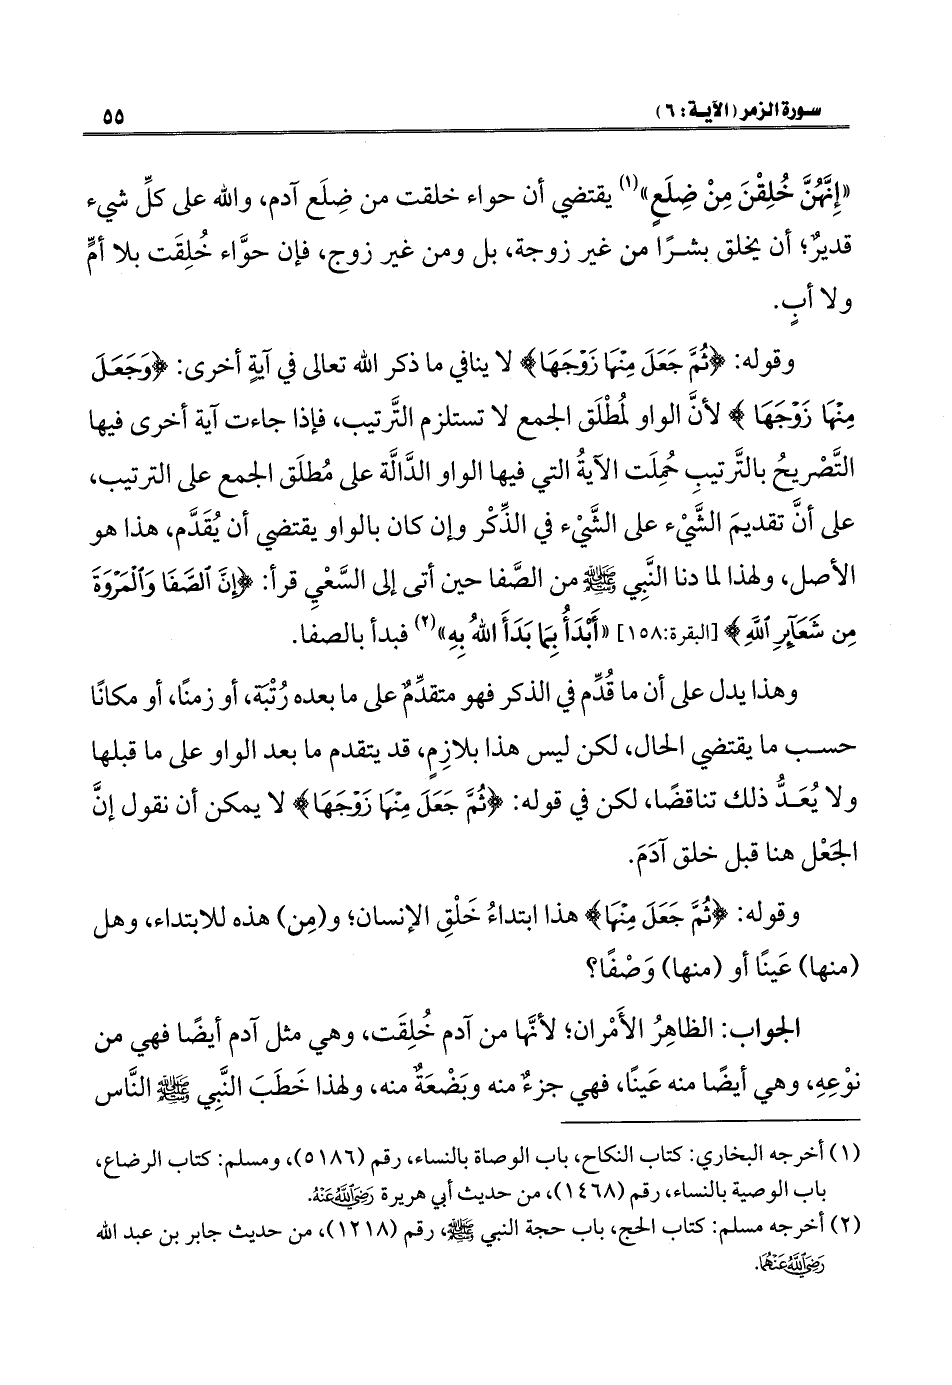 سورة الزمر (الآية: ٦)
٥٥
«إِنَّهُنَّ خُلِقْنَ مِنْ ضِلَعٍ»(١) يقتضي أن حواء خلقت من ضِلَع آدم، والله على كلِّ شيء
قديرٌ؛ أن يخلق بشرًا من غير زوجة، بل ومن غير زوج، فإن حوَّاء خُلِقَت بلا أمٍّ
ولا أبٍ.
وقوله: ﴿ثُمَّ جَعَلَ مِنْهَا زَوْجَهَا﴾ لا ينافي ما ذكر الله تعالى في آيةٍ أخرى: ﴿وَجَعَلَ
مِنْهَا زَوْجَهَا﴾ لأنَّ الواو لمُطْلَق الجمع لا تستلزم التَّرتيب، فإذا جاءت آية أخرى فيها
التَّصْريحُ بالتَّرتيبِ حُمِلَت الآيةُ التي فيها الواو الدَّالَّة على مُطلَق الجمع على الترتيب،
على أنَّ تقديمَ الشَّيْء على الشَّيْء في الذِّكْر وإن كان بالواو يقتضي أن يُقَدَّم، هذا هو
الأصل، ولهذا لما دنا النَّبِي ﷺ من الصَّفا حين أتى إلى السَّعْيِ قرأ: ﴿إِنَّ ٱلصَّفَا وَٱلْمَرْوَةَ
مِن شَعَآئِرِ ٱللَّهِ﴾ [البقرة:١٥٨] «أَبْدَأُ بِمَا بَدَأَ اللهُ بِهِ»(٢) فبدأ بالصفا.
وهذا يدل على أن ما قُدِّم في الذكر فهو متقدِّمٌ على ما بعده رُتْبَة، أو زمنًا، أو مكانًا
حسب ما يقتضي الحال، لكن ليس هذا بلازِمٍ، قد يتقدم ما بعد الواو على ما قبلها
ولا يُعَدُّ ذلك تناقضًا، لكن في قوله: ﴿ثُمَّ جَعَلَ مِنْهَا زَوْجَهَا﴾ لا يمكن أن نقول إنَّ
الجَعْل هنا قبل خلق آدَمَ.
وقوله: ﴿ثُمَّ جَعَلَ مِنْهَا﴾ هذا ابتداءُ خَلْقِ الإنسان؛ و(مِن) هذه للابتداء، وهل
(منها) عَينًا أو (منها) وَصْفًا؟
الجواب: الظاهِرُ الأَمْران؛ لأنَّها من آدم خُلِقَت، وهي مثل آدم أيضًا فهي من
نوْعِهِ، وهي أيضًا منه عَينًا، فهي جزءٌ منه وبَضْعَةٌ منه، ولهذا خَطَبَ النَّبِي ﷺ النَّاس
(١) أخرجه البخاري: كتاب النكاح، باب الوصاة بالنساء، رقم (٥١٨٦)، ومسلم: كتاب الرضاع،
باب الوصية بالنساء، رقم (١٤٦٨)، من حديث أبي هريرة رَضِيَ اللَّهُ عَنْهُ.
(٢) أخرجه مسلم: كتاب الحج، باب حجة النبي ﷺ، رقم (١٢١٨)، من حديث جابر بن عبد الله
رَضِيَ اللَّهُ عَنْهُمَا.